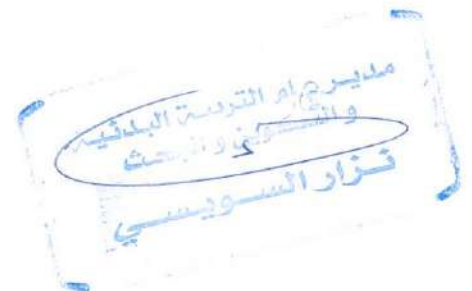 مدير عام التربية البدنية
والتكوين والبحث
نزار السويسي